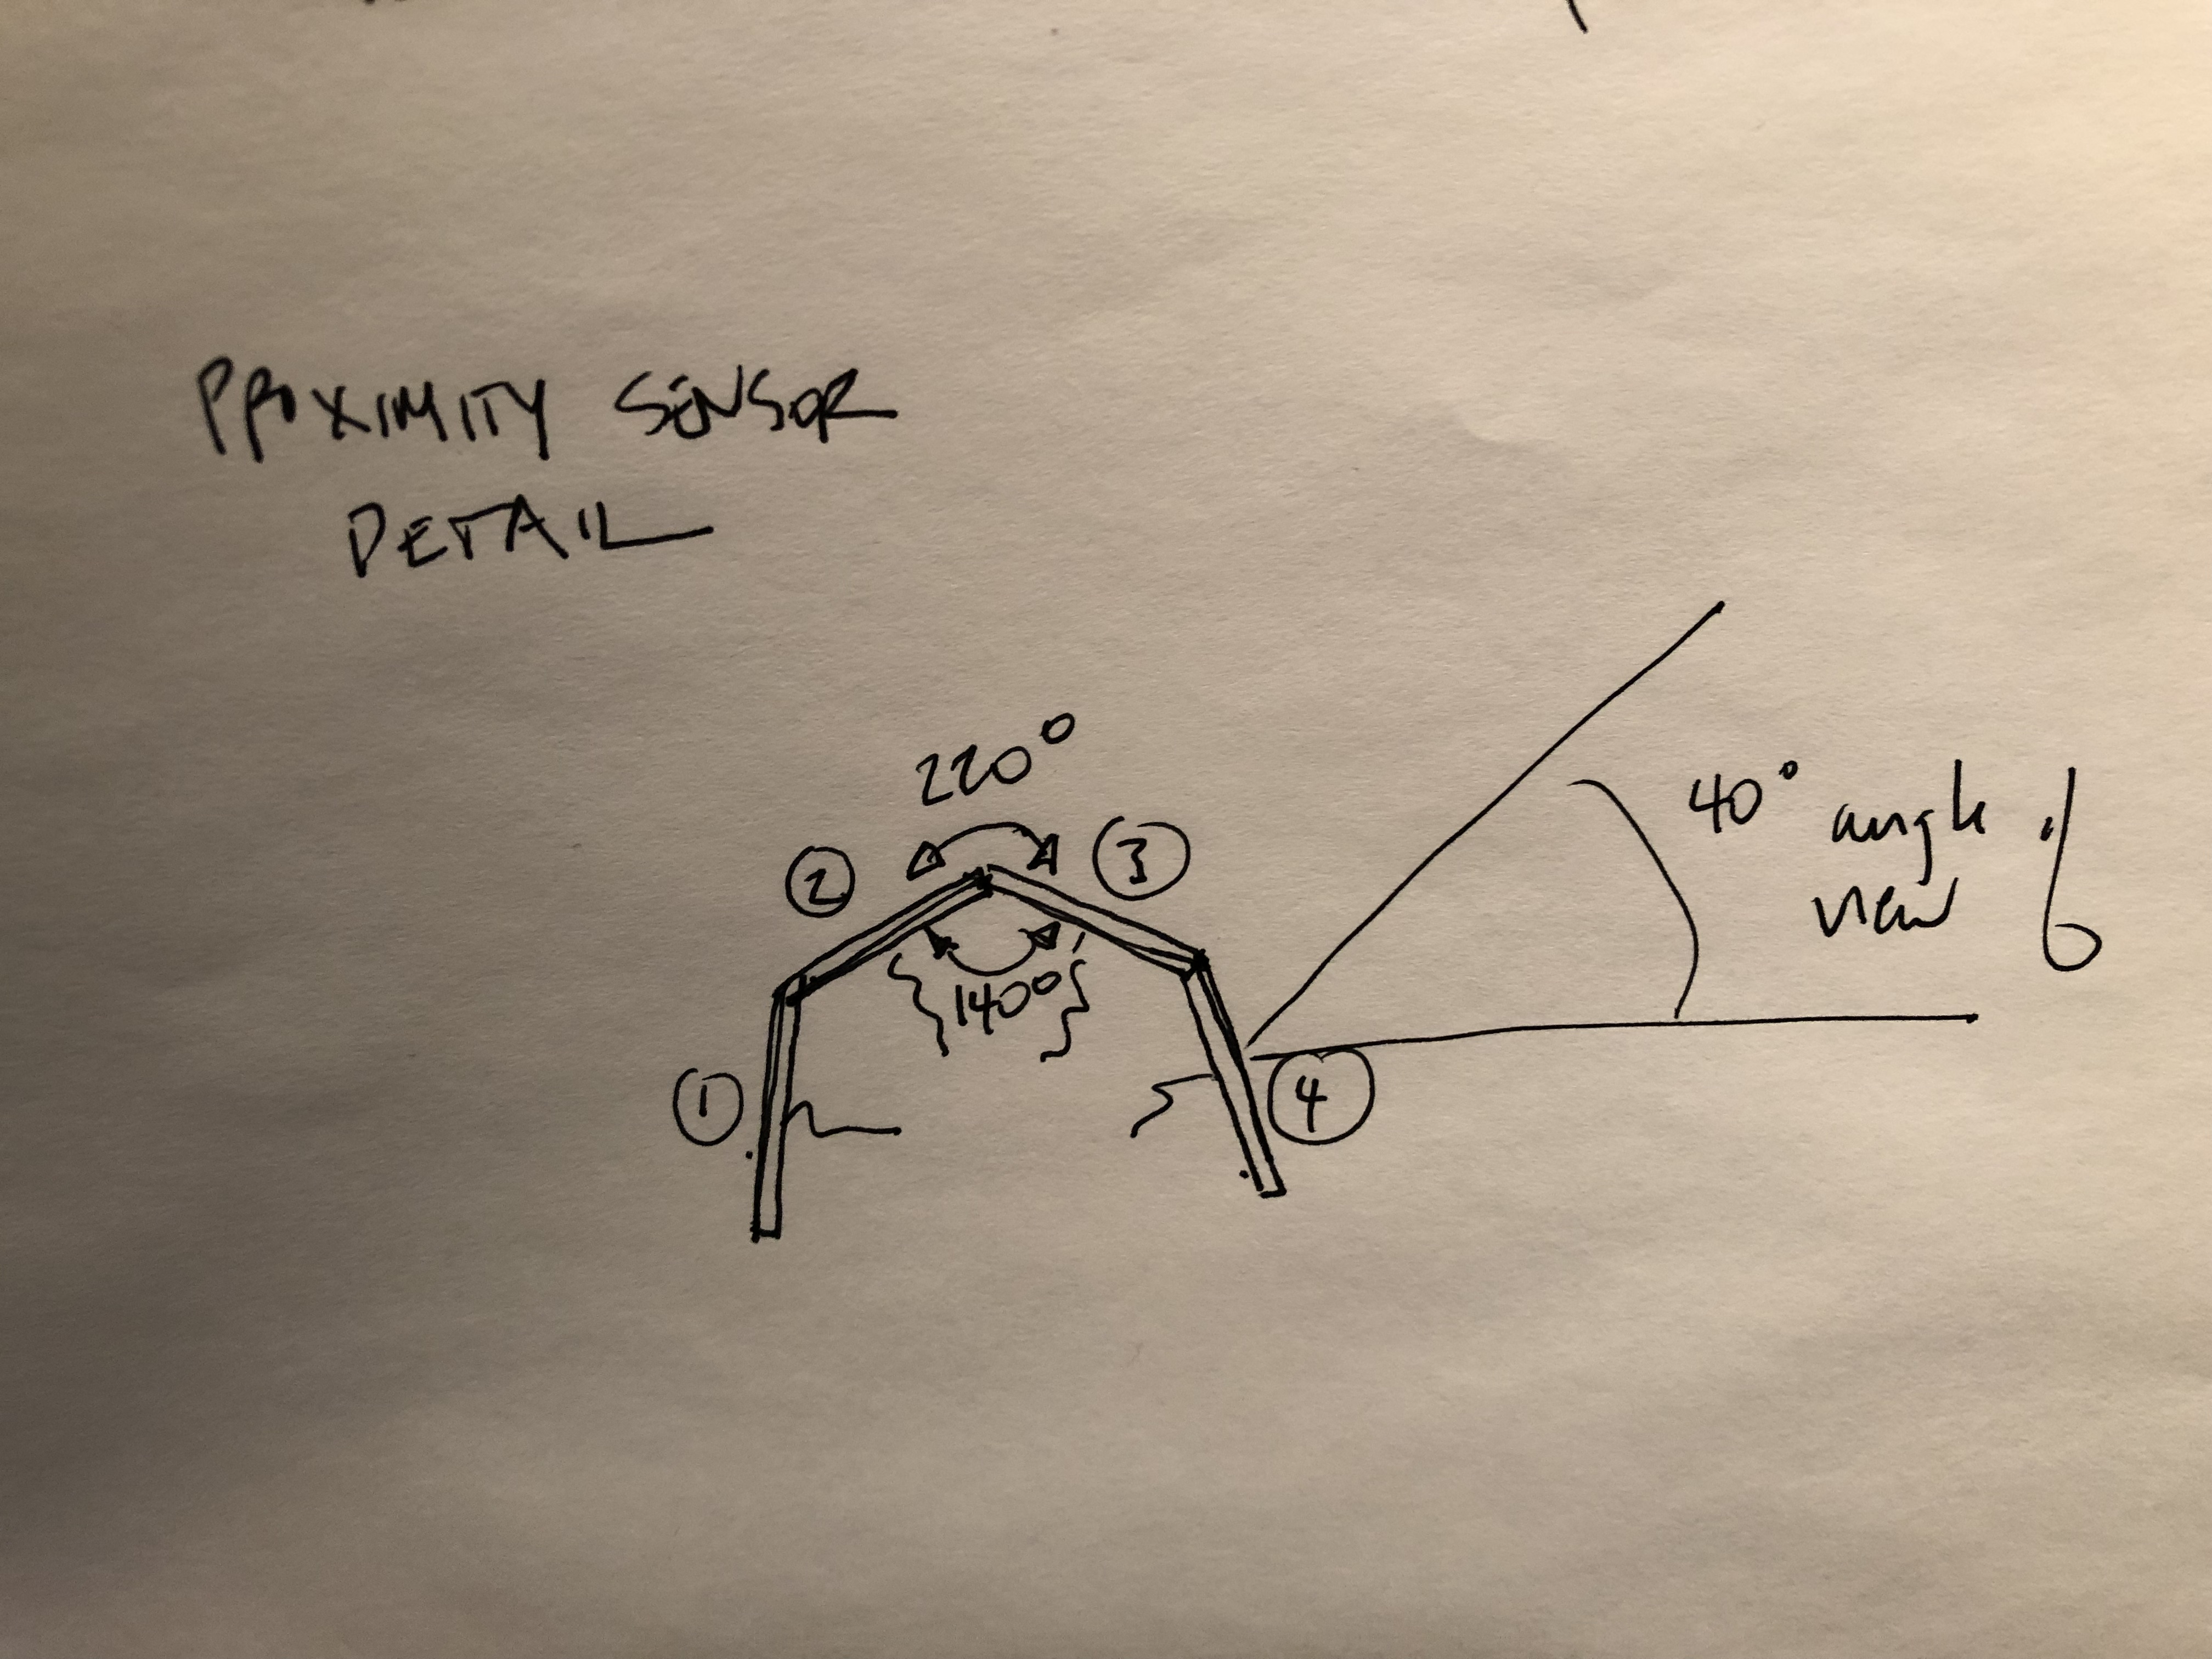 PROXIMITY SENSOR
DETAIL
220°
2
3
140°
1
4
40° angle of
view